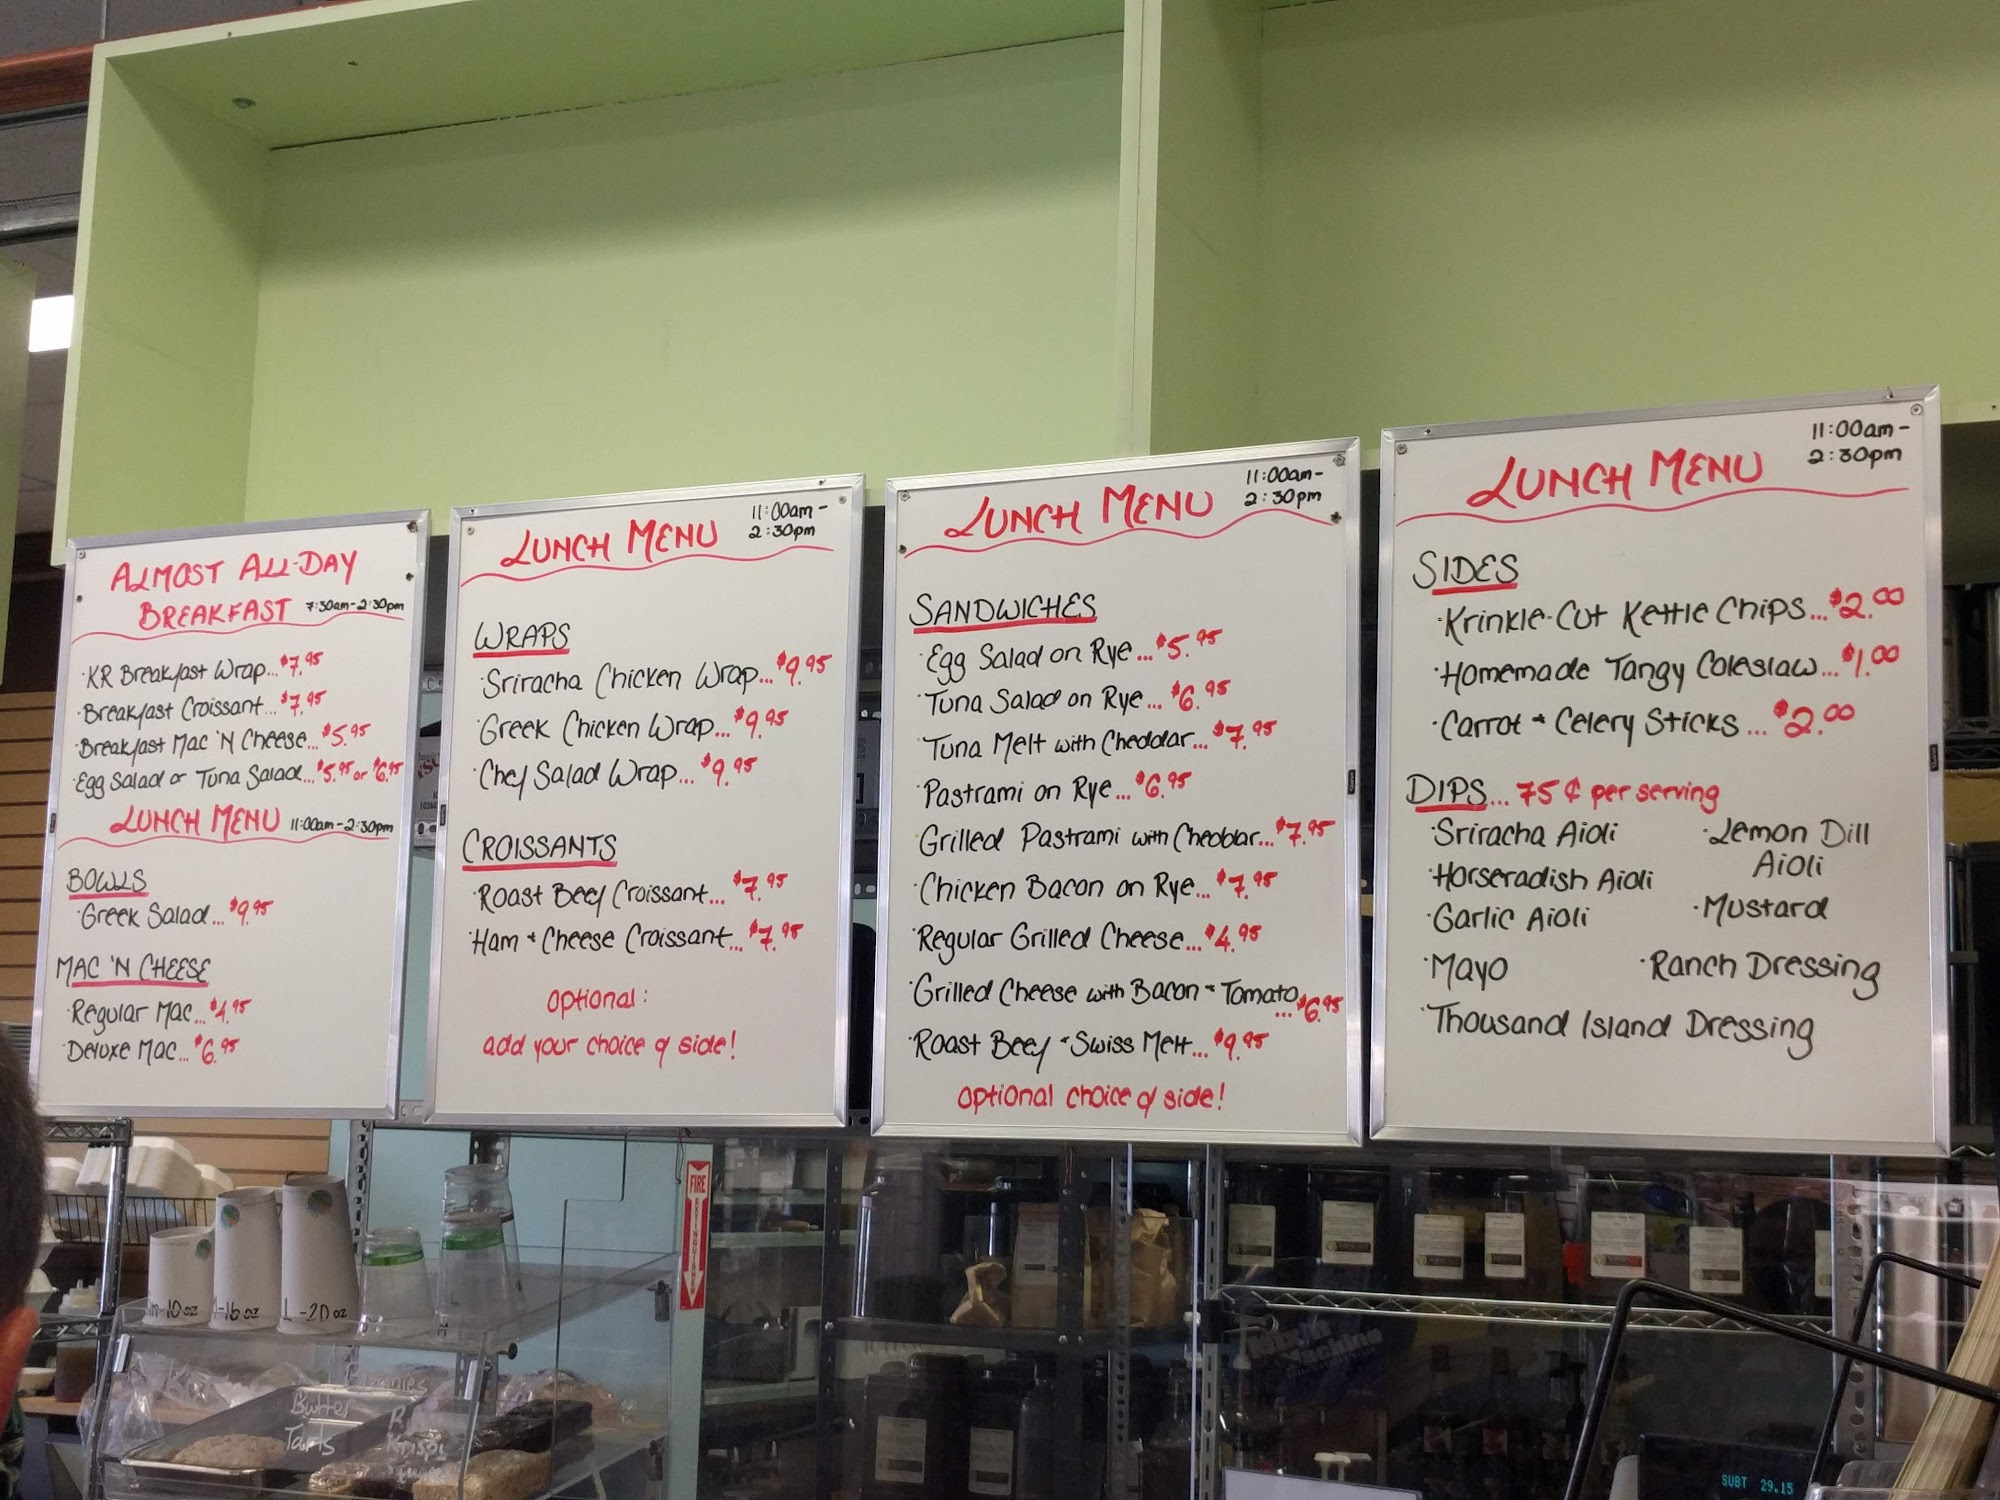 ALMOST ALL-DAY
BREAKFAST 7:30am-2:30pm
·KR Breakfast Wrap...$7.95
·Breakfast Croissant...$7.95
·Breakfast Mac 'N Cheese...$5.95
·Egg Salad or Tuna Salad...$5.95 or $6.95
LUNCH MENU 11:00am-2:30pm
BOWLS
·Greek Salad...$9.95
MAC 'N CHEESE
·Regular Mac...$4.95
·Deluxe Mac...$6.95
LUNCH MENU
11:00am-
2:30pm
WRAPS
·Sriracha Chicken Wrap...$9.95
·Greek Chicken Wrap...$9.95
·Chef Salad Wrap...$9.95
CROISSANTS
·Roast Beef Croissant...$7.95
·Ham + Cheese Croissant...$7.95
optional:
add your choice of side!
LUNCH MENU
11:00am-
2:30pm
SANDWICHES
·Egg Salad on Rye...$5.95
·Tuna Salad on Rye...$6.95
·Tuna Melt with Cheddar...$7.95
·Pastrami on Rye...$6.95
·Grilled Pastrami with Cheddar...$7.95
·Chicken Bacon on Rye...$7.95
·Regular Grilled Cheese...$4.95
·Grilled Cheese with Bacon + Tomato
...$6.95
·Roast Beef + Swiss Melt...$9.95
optional choice of side!
LUNCH MENU
11:00am-
2:30pm
SIDES
·Krinkle-Cut Kettle Chips...$2.00
·Homemade Tangy Coleslaw...$1.00
·Carrot + Celery Sticks...$2.00
DIPS...75¢ per serving
·Sriracha Aioli
·Horseradish Aioli
·Garlic Aioli
·Mayo
·Thousand Island Dressing
·Lemon Dill
Aioli
·Mustard
·Ranch Dressing
FIRE
EXTINGUISHER
-10 oz
-16 oz
L-20 oz
Butter
Tarts
SUBT 29.15